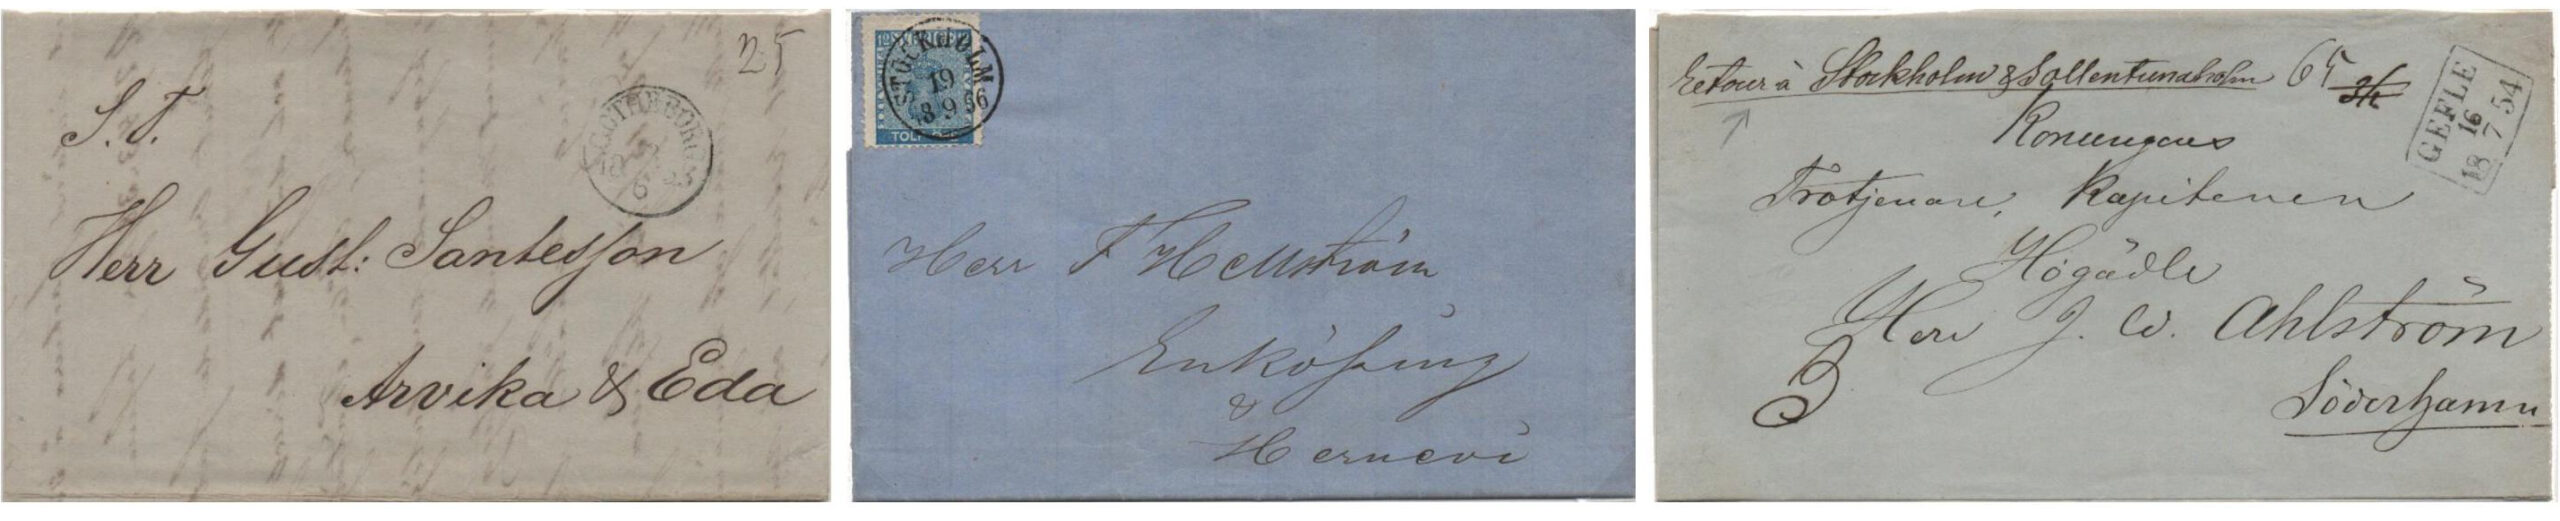 25
S. T.
GÖTHEBORG
18 2 53
6
Herr Gust: Santesson
Arvika & Eda
STOCKHOLM
19
18 9 66
TOLF ÖRE
Herr F Hellström
Enköping
&
Hernevi
Retour à Stockholm & Sollentunaholm 65
GEFLE
16
18 7 54
Konungens
Trotjenare, Kapitenen
Högädle
Herr J. W. Ahlström
3
Söderhamn